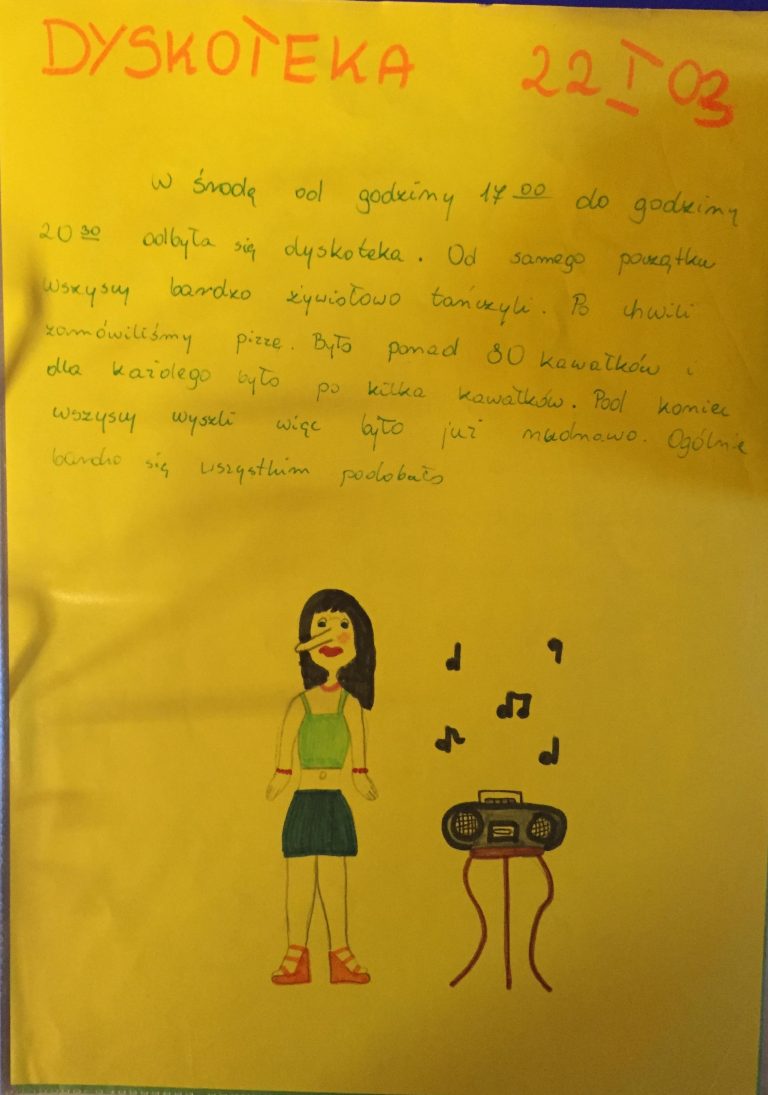 DYSKOTEKA 22 I 03
W środę od godziny 17 00 do godziny
20 30 odbyła się dyskoteka. Od samego początku
wszyscy bardzo żywiołowo tańczyli. Po chwili
zamówiliśmy pizzę. Było ponad 80 kawałków i
dla każdego było po kilka kawałków. Pod koniec
wszyscy wyszli więc było już nudnawo. Ogólnie
bardzo się wszystkim podobało